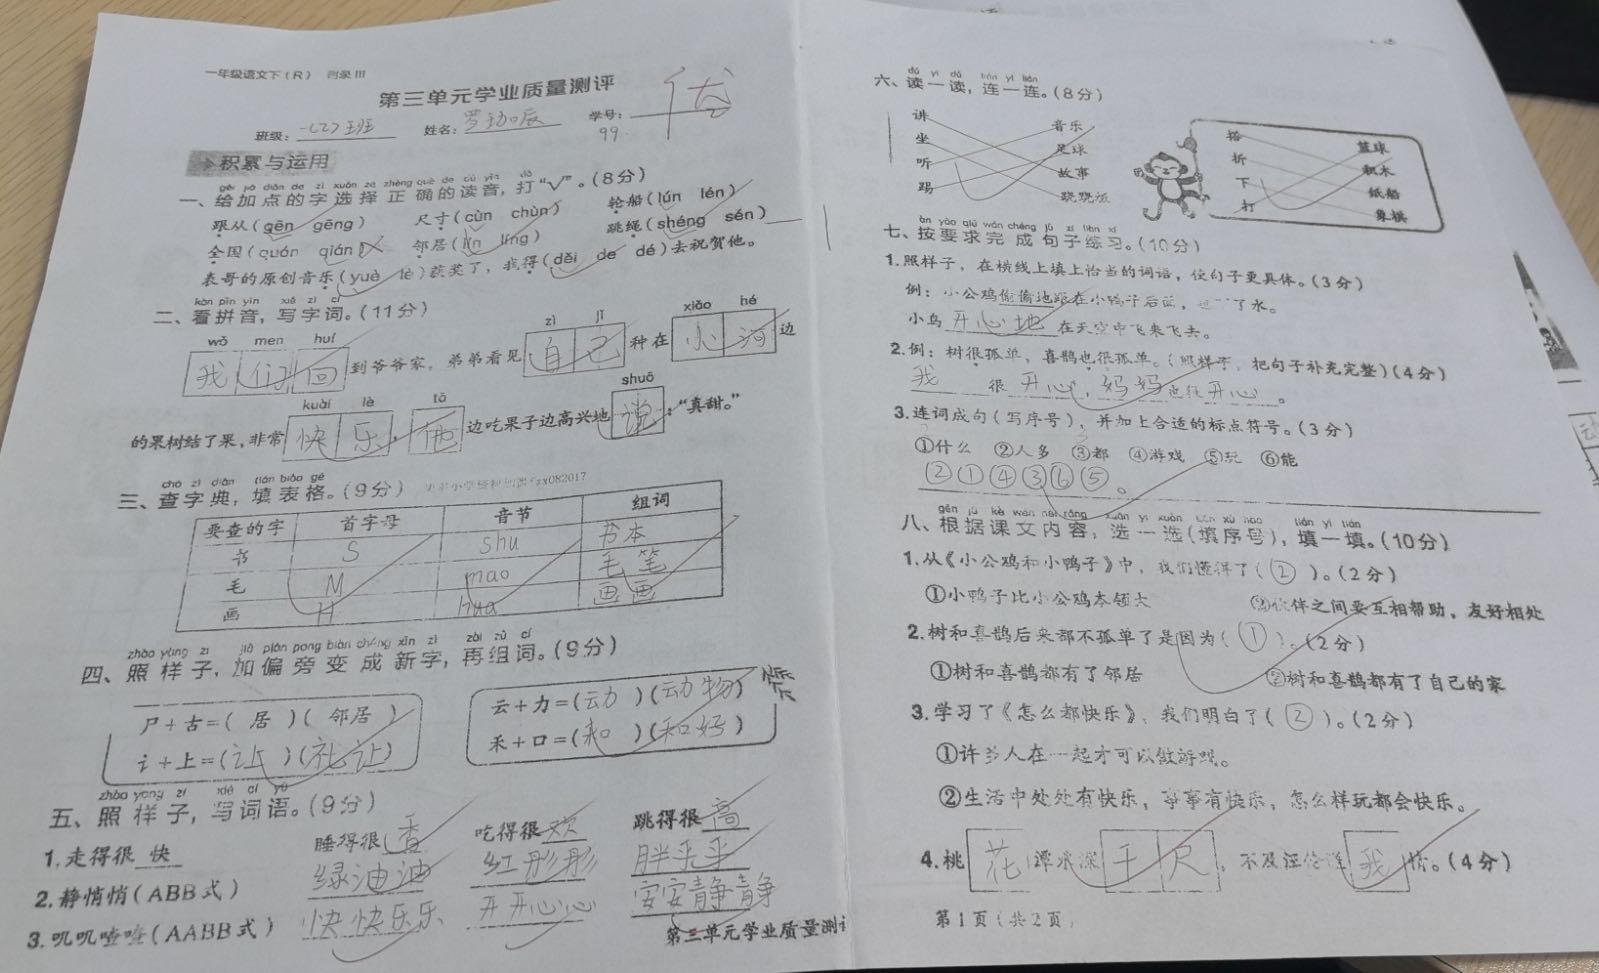 一年级语文下(R)
第三单元学业质量测评
优
班级: 一(2)班 姓名: 学号:
99
积累与运用
gěi jiā diǎn de zì xuǎn zé zhèng què de dú yīn dǎ
一、给加点的字选择正确的读音,打“√”。(8分)
跟从(gēn gēng) 尺寸(cùn chùn) 轮船(lún lén)
全国(quán qián) 邻居(lín líng) 跳绳(shéng sén)
表哥的原创音乐(yuè lè)获奖了,我得(děi de dé)去祝贺他。
kàn pīn yīn xiě zì cí
二、看拼音,写字词。(11分)
wǒ men huí zì jǐ xiǎo hé
我们回到爷爷家,弟弟看见自己种在小河边
kuài lè tā shuō
的果树结了果,非常快乐,他边吃果子边高兴地说:“真甜。”
chá zì diǎn tián biǎo gé
三、查字典,填表格。(9分)
要查的字 首字母 音节 组词
书 S shu 书本
毛 M mao 毛笔
画 H hua 画画
zhào yàng zi jiā piān páng biàn chéng xīn zì zài zǔ cí
四、照样子,加偏旁变成新字,再组词。(9分)
尸+古=(居)(邻居) 云+力=(动)(动物)
讠+上=(让)(礼让) 禾+口=(和)(和好)
zhào yàng zi xiě cí yǔ
五、照样子,写词语。(9分)
1.走得很 快 睡得很 香 吃得很 欢 跳得很 高
2.静悄悄(ABB式) 绿油油 红彤彤 胖乎乎
3.叽叽喳喳(AABB式) 快快乐乐 开开心心 安安静静
第三单元学业质量测
dú yì dú lián yì lián
六、读一读,连一连。(8分)
讲 音乐 搭 篮球
坐 足球 折 积木
听 故事 下 纸船
踢 跷跷板 打 象棋
àn yāo qiú wán chéng jù zi liàn xí
七、按要求完成句子练习。(10分)
1.照样子,在横线上填上恰当的词语,使句子更具体。(3分)
例:小公鸡偷偷地跟在小鸭子后面,也下了水。
小鸟 开心地 在天空中飞来飞去。
2.例:树很孤单,喜鹊也很孤单。(照样子,把句子补充完整)(4分)
我 很 开心,妈妈也很开心。
3.连词成句(写序号),并加上合适的标点符号。(3分)
①什么 ②人多 ③都 ④游戏 ⑤玩 ⑥能
②①④③⑥⑤。
gēn jù kè wén nèi róng xuǎn yi xuǎn tián xù hào tián yi tián
八、根据课文内容,选一选(填序号),填一填。(10分)
1.从《小公鸡和小鸭子》中,我们懂得了(②)。(2分)
①小鸭子比小公鸡本领大 ②伙伴之间要互相帮助,友好相处
2.树和喜鹊后来都不孤单了是因为(①)。(2分)
①树和喜鹊都有了邻居 ②树和喜鹊都有了自己的家
3.学习了《怎么都快乐》,我们明白了(②)。(2分)
①许多人在一起才可以做游戏。
②生活中处处有快乐,事事有快乐,怎么样玩都会快乐。
4.桃花潭水深千尺,不及汪伦送我情。(4分)
第1页(共2页)